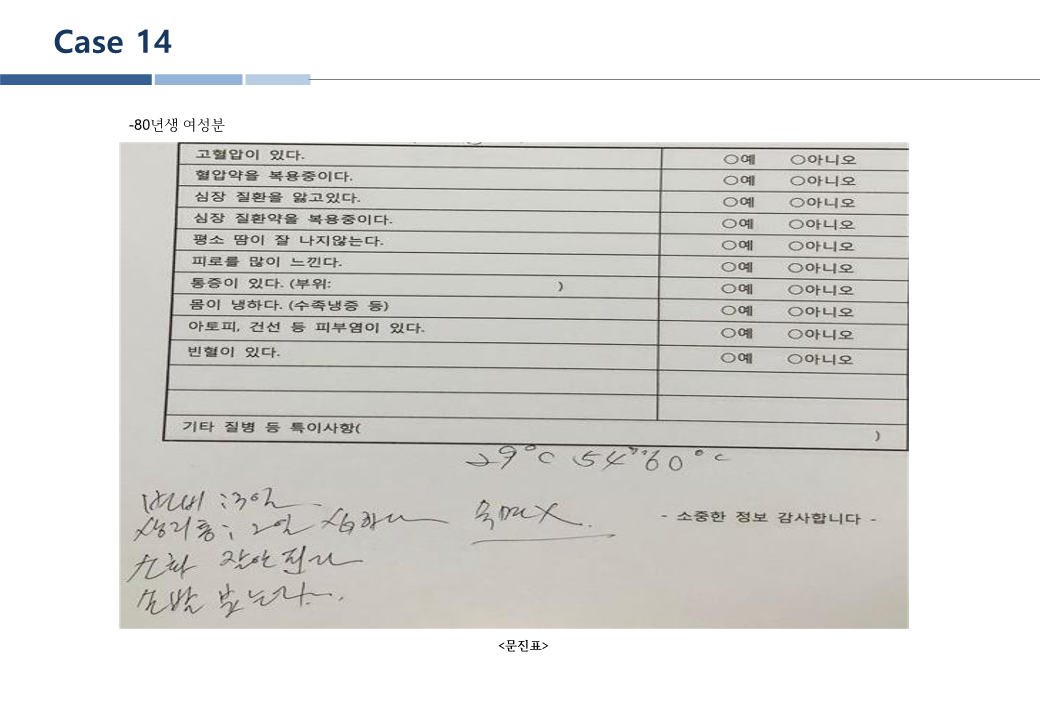 Case 14
-80년생 여성분
고혈압이 있다. ○예 ○아니오
혈압약을 복용중이다. ○예 ○아니오
심장 질환을 앓고있다. ○예 ○아니오
심장 질환약을 복용중이다. ○예 ○아니오
평소 땀이 잘 나지않는다. ○예 ○아니오
피로를 많이 느낀다. ○예 ○아니오
통증이 있다. (부위: ) ○예 ○아니오
몸이 냉하다. (수족냉증 등) ○예 ○아니오
아토피, 건선 등 피부염이 있다. ○예 ○아니오
빈혈이 있다. ○예 ○아니오
기타 질병 등 특이사항( )
29°C 54% 60°C
변비 : 3일
생리통 : 2일 심하다 숙면X.
소화 잘안된다
손발 붓는다.
- 소중한 정보 감사합니다 -
<문진표>